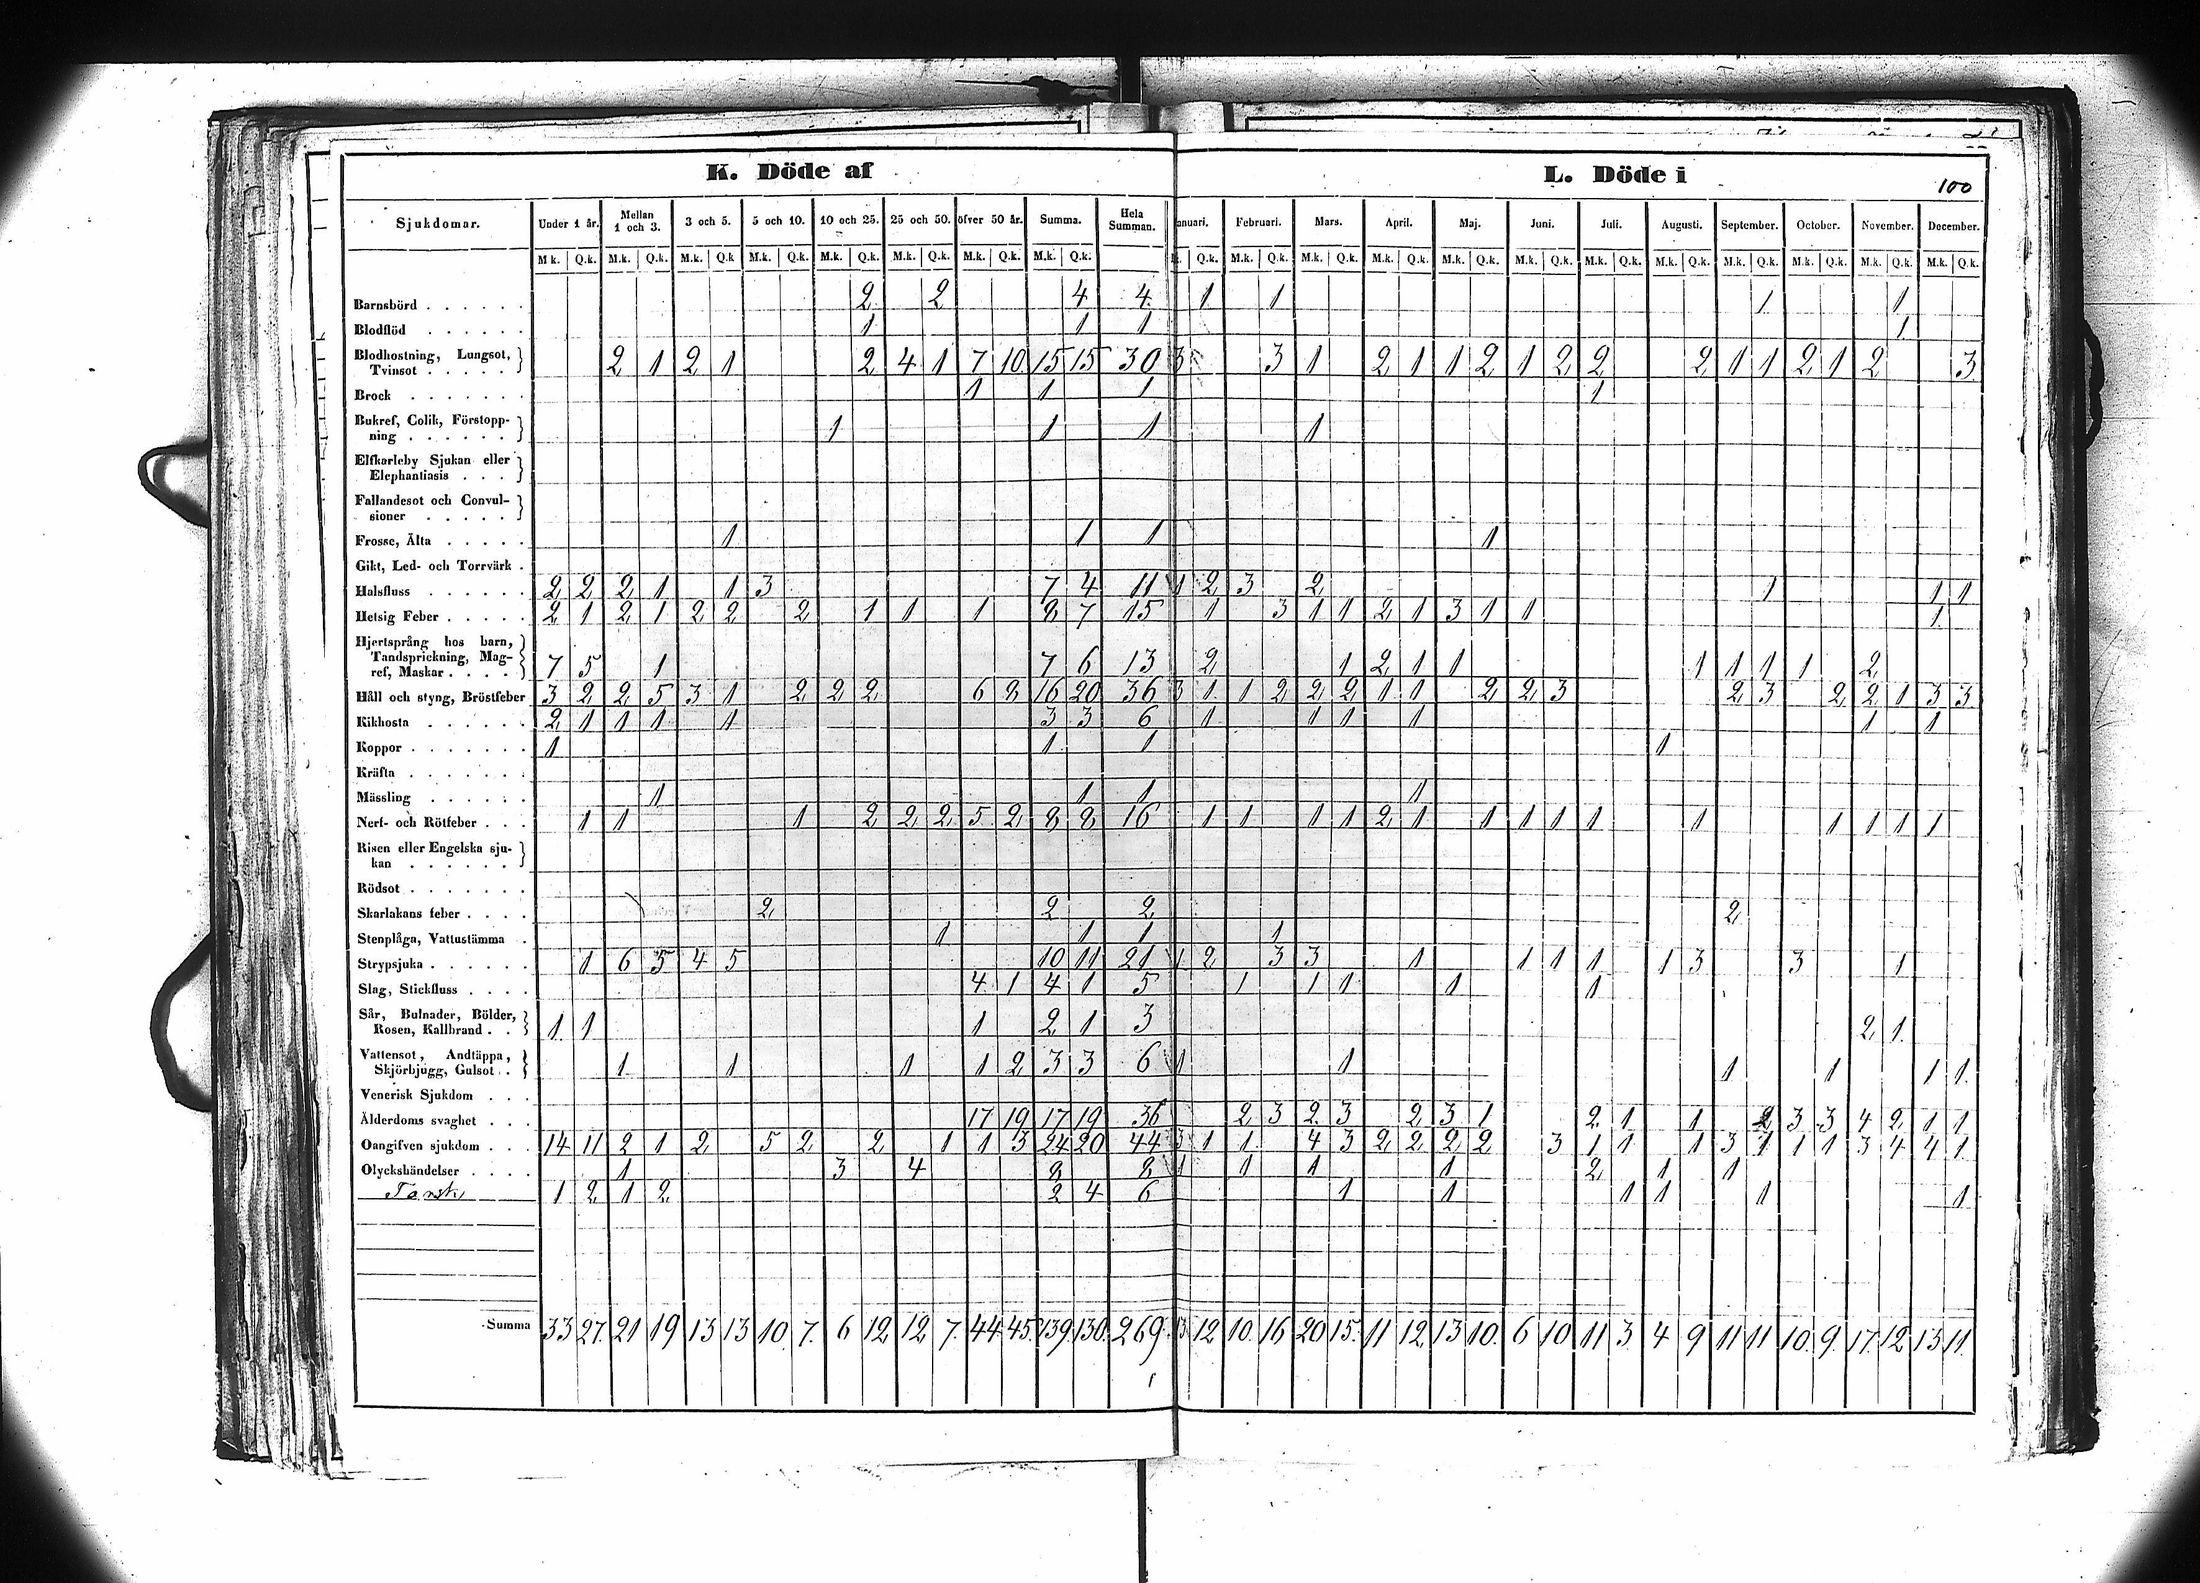 K. Döde af L. Döde i 100
Sjukdomar. Under 1 år. Mellan 1 och 3. 3 och 5. 5 och 10. 10 och 25. 25 och 50. öfver 50 år. Summa. Hela Summan. anuari. Februari. Mars. April. Maj. Juni. Juli. Augusti. September. October. November. December.
M.k. Q.k. M.k. Q.k. M.k. Q.k M.k. Q.k. M.k. Q.k. M.k. Q.k. M.k. Q.k. M.k. Q.k. Q.k. M.k. Q.k. M.k. Q.k. M.k. Q.k. M.k. Q.k. M.k. Q.k. M.k. Q.k. M.k. Q.k. M.k. Q.k. M.k. Q.k. M.k. Q.k. M.k. Q.k.
Barnsbörd 2 2 4 4 1 1 1 1
Blodflöd 1 1 1 1
Blodhostning, Lungsot,
Tvinsot 2 1 2 1 2 4 1 7 10 15 15 30 3 3 1 2 1 1 2 1 2 2 2 1 1 2 1 2 3
Brock 1 1 1 1
Bukref, Colik, Förstopp-
ning 1 1 1 1
Elfkarleby Sjukan eller
Elephantiasis
Fallandesot och Convul-
sioner
Frosse, Älta 1 1 1 1
Gikt, Led- och Torrvärk
Halsfluss 2 2 2 1 1 3 7 4 11 1 2 3 2 1 1 1
Hetsig Feber 2 1 2 1 2 2 2 1 1 1 8 7 15 1 3 1 1 2 1 3 1 1 1
Hjertsprång hos barn,
Tandsprickning, Mag-
ref, Maskar 7 5 1 7 6 13 2 1 2 1 1 1 1 1 1 2
Håll och styng, Bröstfeber 3 2 2 5 3 1 2 2 2 6 8 16 20 36 3 1 1 2 2 2 1 1 2 2 3 2 3 2 2 1 3 3
Kikhosta 2 1 1 1 1 3 3 6 1 1 1 1 1 1
Koppor 1 1 1 1
Kräfta
Mässling 1 1 1 1
Nerf- och Rötfeber 1 1 1 2 2 2 5 2 8 8 16 1 1 1 1 2 1 1 1 1 1 1 1 1 1 1
Risen eller Engelska sju-
kan
Rödsot
Skarlakans feber 2 2 2 2
Stenplåga, Vattustämma 1 1 1 1
Strypsjuka 1 6 5 4 5 10 11 21 1 2 3 3 1 1 1 1 1 3 3 1
Slag, Stickfluss 4 1 4 1 5 1 1 1 1 1
Sår, Bulnader, Bölder,
Rosen, Kallbrand 1 1 1 2 1 3 2 1
Vattensot, Andtäppa,
Skjörbjugg, Gulsot 1 1 1 1 2 3 3 6 1 1 1 1 1 1
Venerisk Sjukdom
Ålderdoms svaghet 17 19 17 19 36 2 3 2 3 2 3 1 2 1 1 2 3 3 4 2 1 1
Oangifven sjukdom 14 11 2 1 2 5 2 2 1 1 3 24 20 44 3 1 1 4 3 2 2 2 2 3 1 1 1 3 1 1 1 3 4 4 1
Olyckshändelser 1 3 4 8 8 1 1 1 1 2 1 1
Torsk 1 2 1 2 2 4 6 1 1 1 1 1 1
Summa 33 27. 21 19 13 13 10. 7. 6 12 12 7. 44 45. 139. 130. 269. 13 12 10. 16 20 15. 11 12 13 10. 6 10 11 3 4 9 11 11 10. 9. 17. 12 13 11.